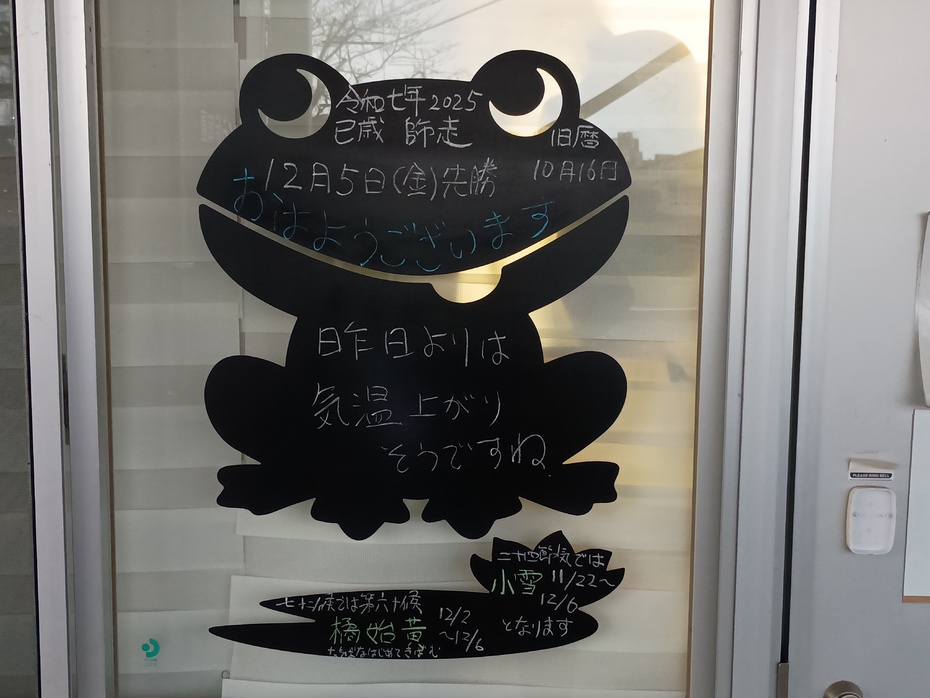 令和七年2025
巳歳 師走
旧暦
10月16日
12月5日(金)先勝
おはようございます
昨日よりは
気温上がり
そうですね
二十四節気では
小雪 11/22~
12/6
となります
七十二候では第六十候
橘始黄 12/2
~12/6
たちばなはじめてきばむ
PLEASE RING BELL